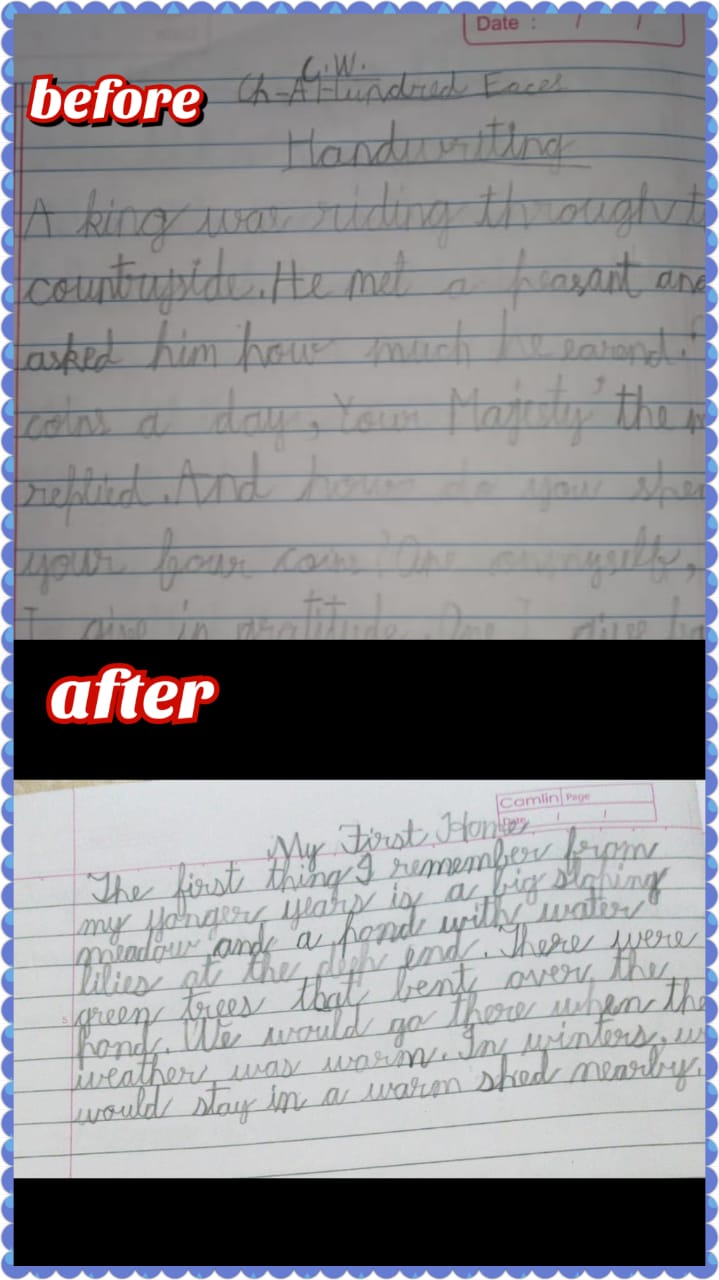 Date : / /
before
C.W.
Ch-A Hundred Faces
Handwriting
A king was riding through t
countryside. He met a peasant and
asked him how much he earend.
coins a day, Your Majesty' the
replied. And how do you spen
your four coins? One on myself,
I give in gratitude. One I give
after
Camlin Page
Date / /
My First Home
The first thing I remember from
my yonger years is a big sloping
meadow and a pond with water
lilies at the deep end. There were
green trees that bent over the
5
pond. We would go there when the
weather was warm. In winters, w
would stay in a warm shed nearby.